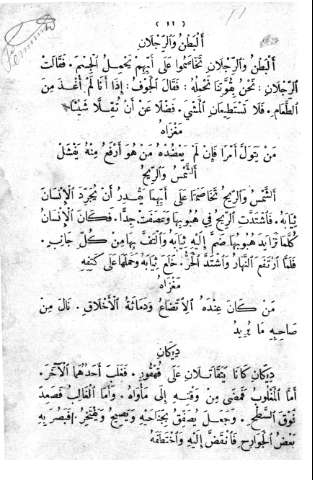 ( ١٢ )
أَلْبَطْنُ وَالرِّجْلَانِ
أَلْبَطْنُ وَالرِّجْلَانِ تَخَاصَمُوا عَلَى أَيُّهُمْ يَحْمِلُ الْجِسْمَ. فَقَالَتْ
الرِّجْلَانِ: نَحْنُ بِقُوَّتِنَا نَحْمِلُهُ: فَقَالَ الْجَوْفُ: إِذَا أَنَا لَمْ أَغْتَذِ مِنَ
الطَّعَامِ. فَلَا تَسْتَطِيعَانِ الْمَشْيَ. فَضْلًا عَنْ أَنْ تُقِلَّا شَيْئًا
مَغْزَاهُ
مَنْ يَتَوَلَّ أَمْرًا فَإِنْ لَمْ يَعْضُدْهُ مَنْ هُوَ أَرْفَعُ مِنْهُ يَفْشَلْ
أَلشَّمْسُ وَالرِّيحُ
أَلشَّمْسُ وَالرِّيحُ تَخَاصَمَتَا عَلَى أَيُّهُمَا يَقْدِرُ أَنْ يُجَرِّدَ الْإِنْسَانَ
ثِيَابَهُ. فَاشْتَدَّتِ الرِّيحُ فِي هُبُوبِهَا وَعَصَفَتْ جِدًّا. فَكَانَ الْإِنْسَانُ
كُلَّمَا تَزَايَدَ هُبُوبُهَا ضَمَّ إِلَيْهِ ثِيَابَهُ وَالْتَفَّ بِهَا مِنْ كُلِّ جَانِبٍ.
فَلَمَّا ارْتَفَعَ النَّهَارُ وَاشْتَدَّ الْحَرُّ. خَلَعَ ثِيَابَهُ وَحَمَلَهَا عَلَى كَتِفِهِ
مَغْزَاهُ
مَنْ كَانَ عِنْدَهُ الْاِتِّضَاعُ وَدَمَاثَةُ الْأَخْلَاقِ. نَالَ مِنْ
صَاحِبِهِ مَا يُرِيدُ
دِيكَانِ
دِيكَانِ كَانَا يَتَقَاتَلَانِ عَلَى قُهْقُورٍ. فَغَلَبَ أَحَدُهُمَا الْآخَرَ.
أَمَّا الْمَغْلُوبُ فَمَضَى مِنْ وَقْتِهِ إِلَى مَأْوَاهُ. وَأَمَّا الْغَالِبُ فَصَعِدَ
فَوْقَ السَّطْحِ. وَجَعَلَ يُصَفِّقُ بِجَنَاحَيْهِ وَيَصِيحُ وَيَفْتَخِرُ. فَبَصُرَ بِهِ
بَعْضُ الْجَوَارِحِ فَانْقَضَّ إِلَيْهِ وَاخْتَطَفَهُ